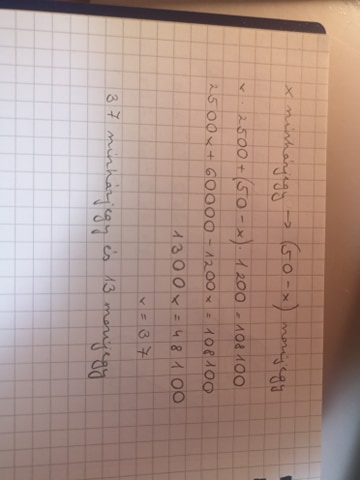 x minhárjegy → (50-x) monijegy
x · 2500 + (50-x) · 1200 = 108100
2500x + 60000 - 1200x = 108100
1300x = 48100
x = 37
37 minhárjegy és 13 monijegy